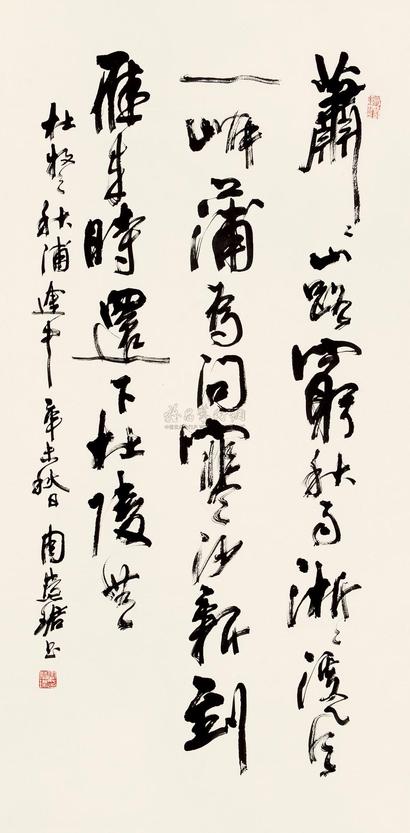 蕭〻山路窮秋雨淅〻溪風
一岸蒲為問寒沙新到
雁來時還下杜陵無
杜牧之秋浦途中辛未春日周慧珺書